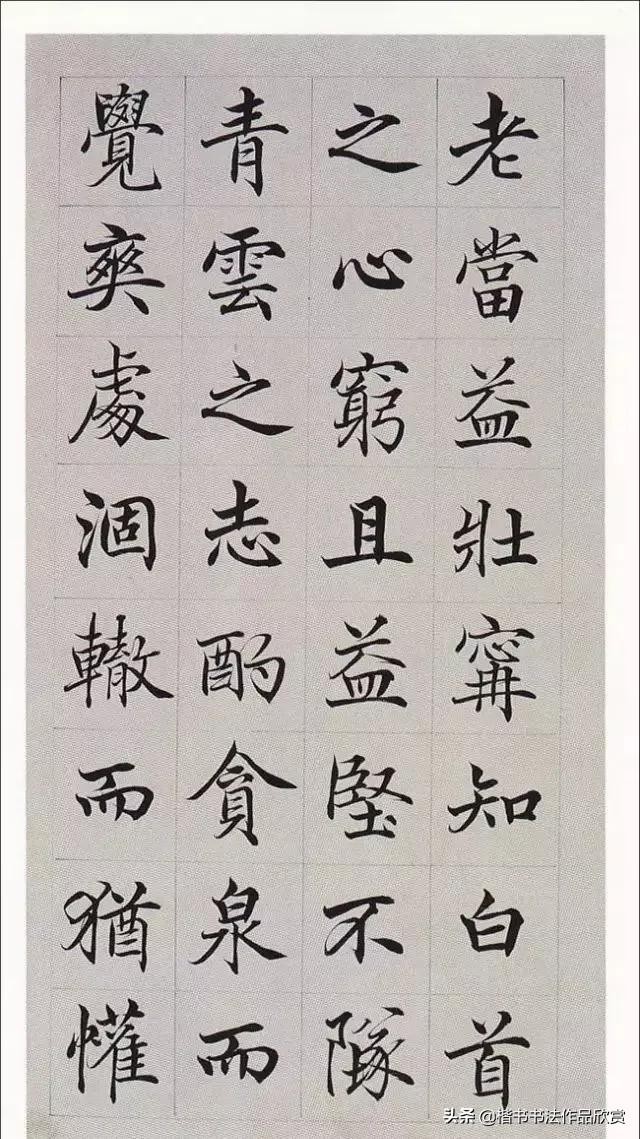 老當益壯寧知白首
之心窮且益堅不隊
青雲之志酌貪泉而
覺爽處涸轍而猶懽
头条 @楷书书法作品欣赏